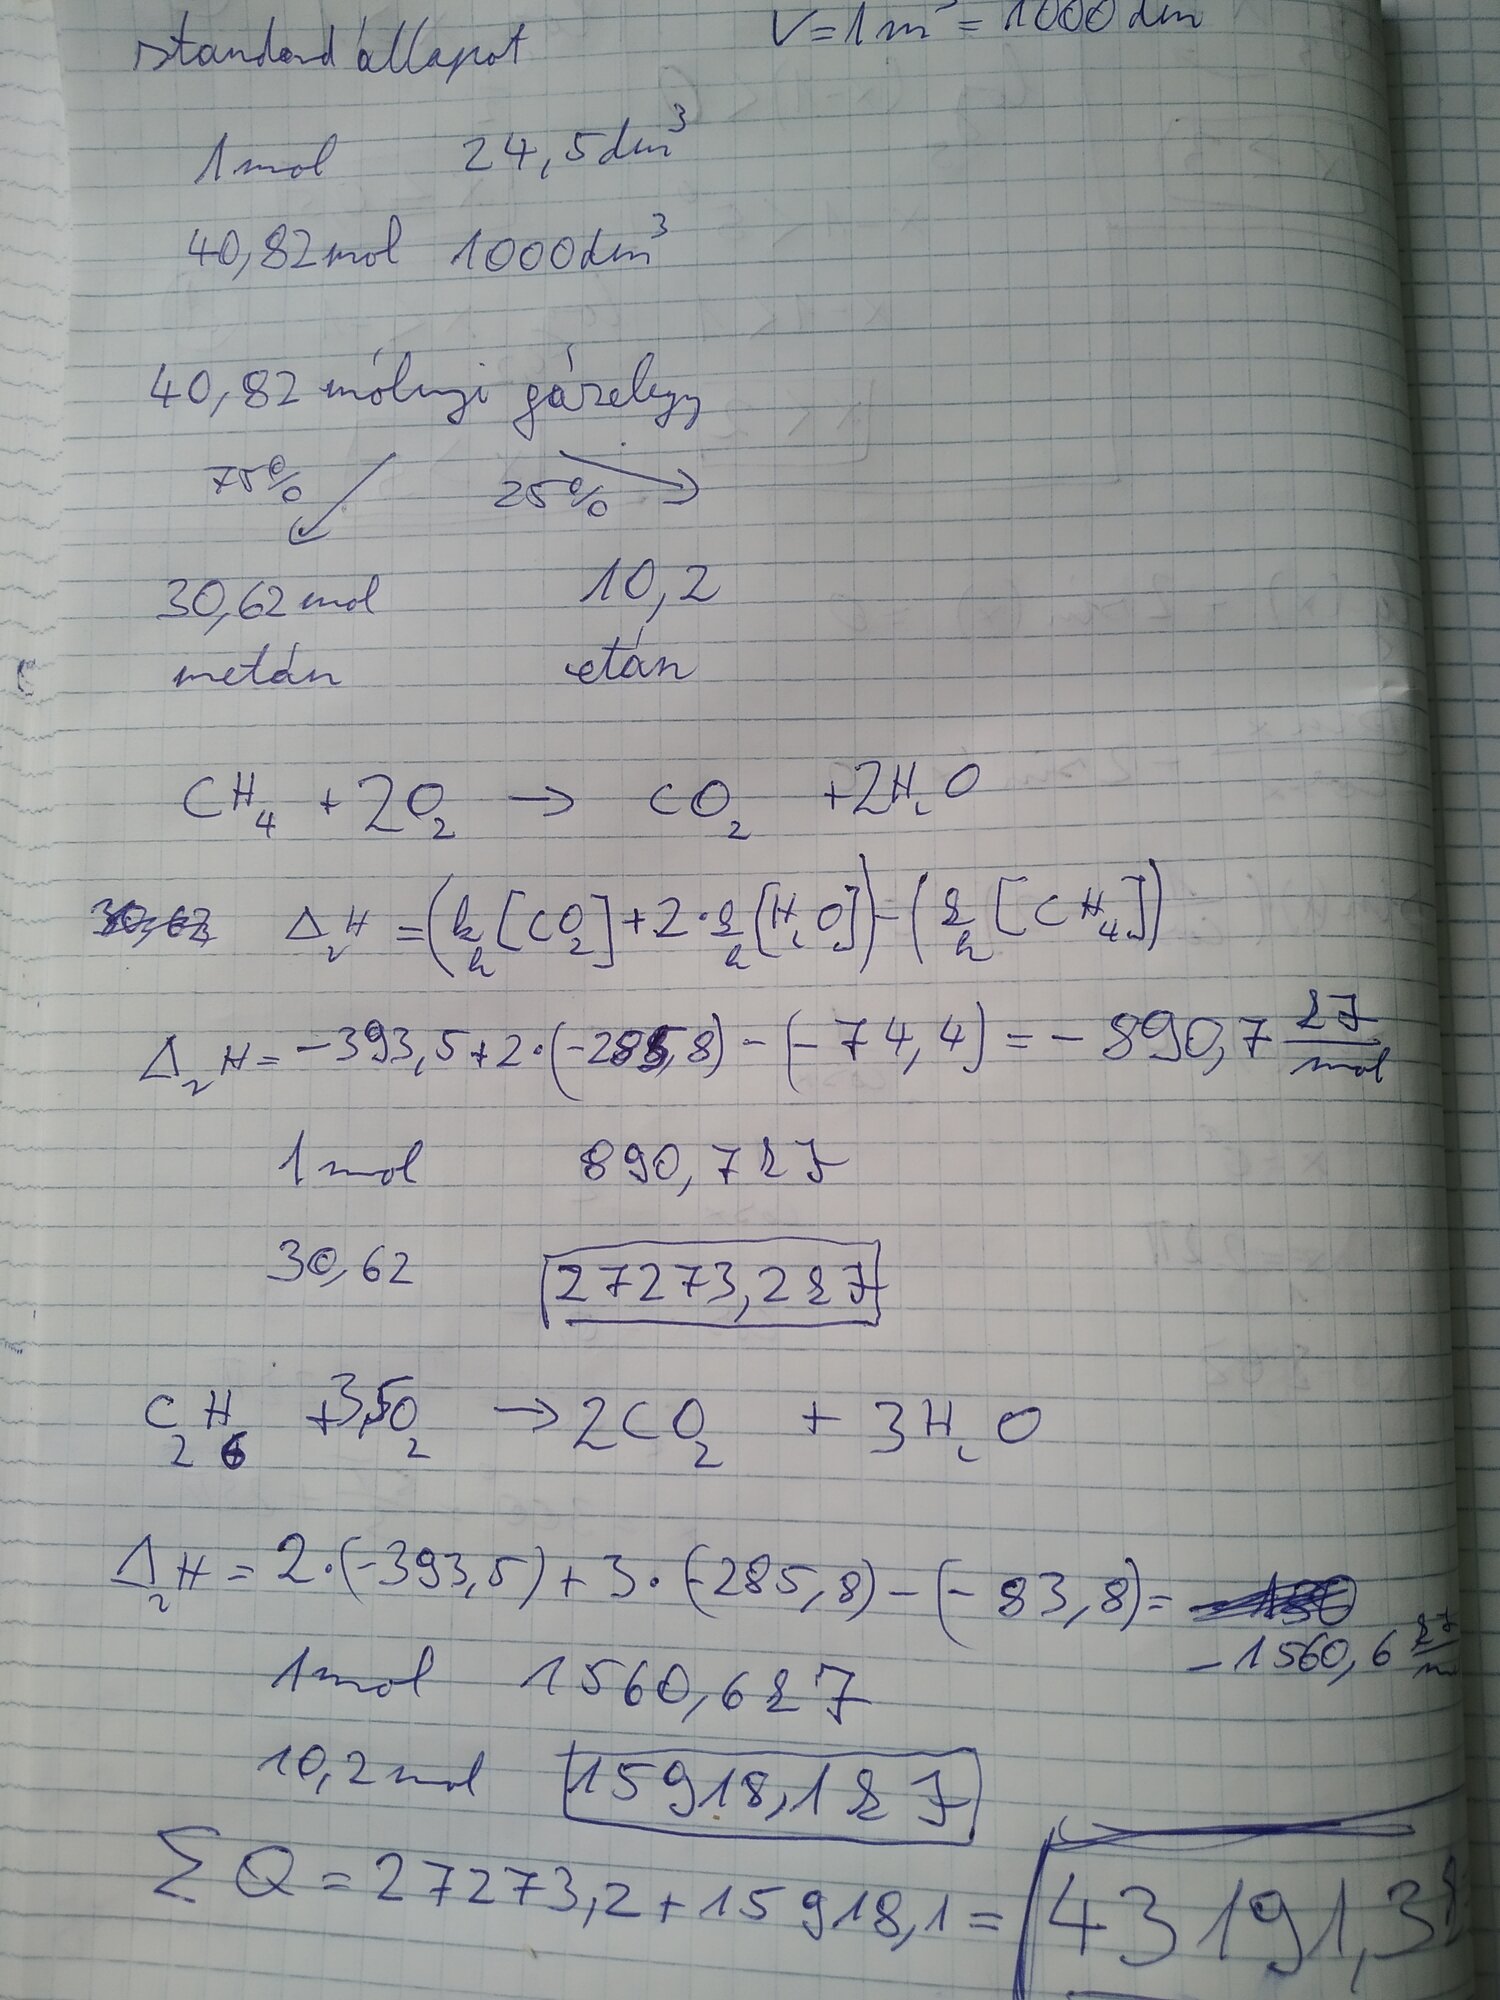 standard állapot V=1m³=1000dm
1mol 24,5dm³
40,82mol 1000dm³
40,82 mólnyi gázelegy
75% 25%
30,62mol 10,2
metán etán
CH₄ + 2O₂ → CO₂ + 2H₂O
ΔᵣH = (kₕ[CO₂] + 2·kₕ[H₂O]) - (kₕ[CH₄])
ΔᵣH = -393,5 + 2·(-285,8) - (-74,4) = -890,7 kJ/mol
1mol 890,7kJ
30,62 27273,2kJ
C₂H₆ + 3,5O₂ → 2CO₂ + 3H₂O
ΔᵣH = 2·(-393,5) + 3·(-285,8) - (-83,8) =
-1560,6 kJ/m
1mol 1560,6kJ
10,2mol 15918,1kJ
ΣQ = 27273,2 + 15918,1 = 43191,3